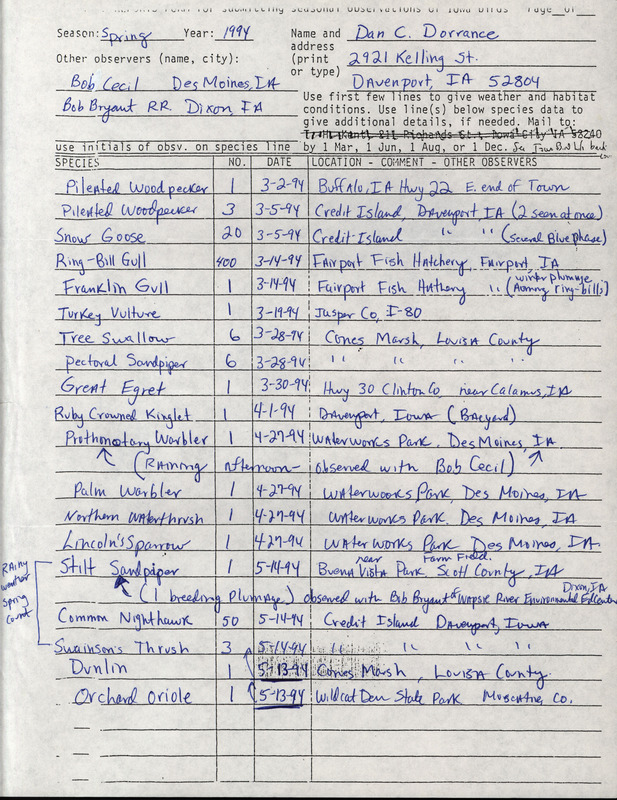 for submitting seasonal observations of Iowa birds Page of
Season: Spring Year: 1994 Name and Dan C. Dorrance
address
Other observers (name, city): (print 2921 Kelling St.
or type)
Bob Cecil Des Moines, IA Davenport, IA 52804
Bob Bryant RR Dixon, IA Use first few lines to give weather and habitat
conditions. Use line(s) below species data to
give additional details, if needed. Mail to:
Iowa City IA 52240
use initials of obsv. on species line by 1 Mar, 1 Jun, 1 Aug, or 1 Dec. See Iowa Bird Life back
SPECIES NO. DATE LOCATION - COMMENT - OTHER OBSERVERS
Pileated Woodpecker 1 3-2-94 Buffalo, IA Hwy 22 E. end of Town
Pileated Woodpecker 3 3-5-94 Credit Island, Davenport, IA (2 seen at once)
Snow Goose 20 3-5-94 Credit Island " " (Several Blue phase)
Ring-Bill Gull 400 3-14-94 Fairport Fish Hatchery, Fairport, IA
Franklin Gull 1 3-14-94 Fairport Fish Hathery " (winter plumage Among ring-bills)
Turkey Vulture 1 3-19-94 Jasper Co, I-80
Tree Swallow 6 3-28-94 Cones Marsh, Louisa County
Pectoral Sandpiper 6 3-28-94 " " " "
Great Egret 1 3-30-94 Hwy 30 Clinton Co near Calamus, IA
Ruby Crowned Kinglet 1 4-1-94 Davenport, Iowa (Bacyard)
Prothonotary Warbler 1 4-27-94 Waterworks Park, Des Moines, IA
(Raining Afternoon - observed with Bob Cecil)
Palm Warbler 1 4-27-94 Waterworks Park, Des Moines, IA
Northern Waterthrush 1 4-27-94 Waterworks Park, Des Moines, IA
Lincoln's Sparrow 1 4-27-94 Waterworks Park Des Moines, IA.
Stilt Sandpiper 1 5-14-94 Buena Vista Park near Farm Field. Scott County, IA
Rainy weather Spring Count
(1 breeding Plumage) observed with Bob Bryant of Wapsie River Environmental Ed Center Dixon, IA
Common Nighthawk 50 5-14-94 Credit Island Davenport, Iowa
Swainson's Thrush 3 5-14-94 " " " "
Dunlin 1 5-13-94 Cones Marsh, Louisa County
Orchard Oriole 1 5-13-94 Wildcat Den State Park Muscatine, Co.